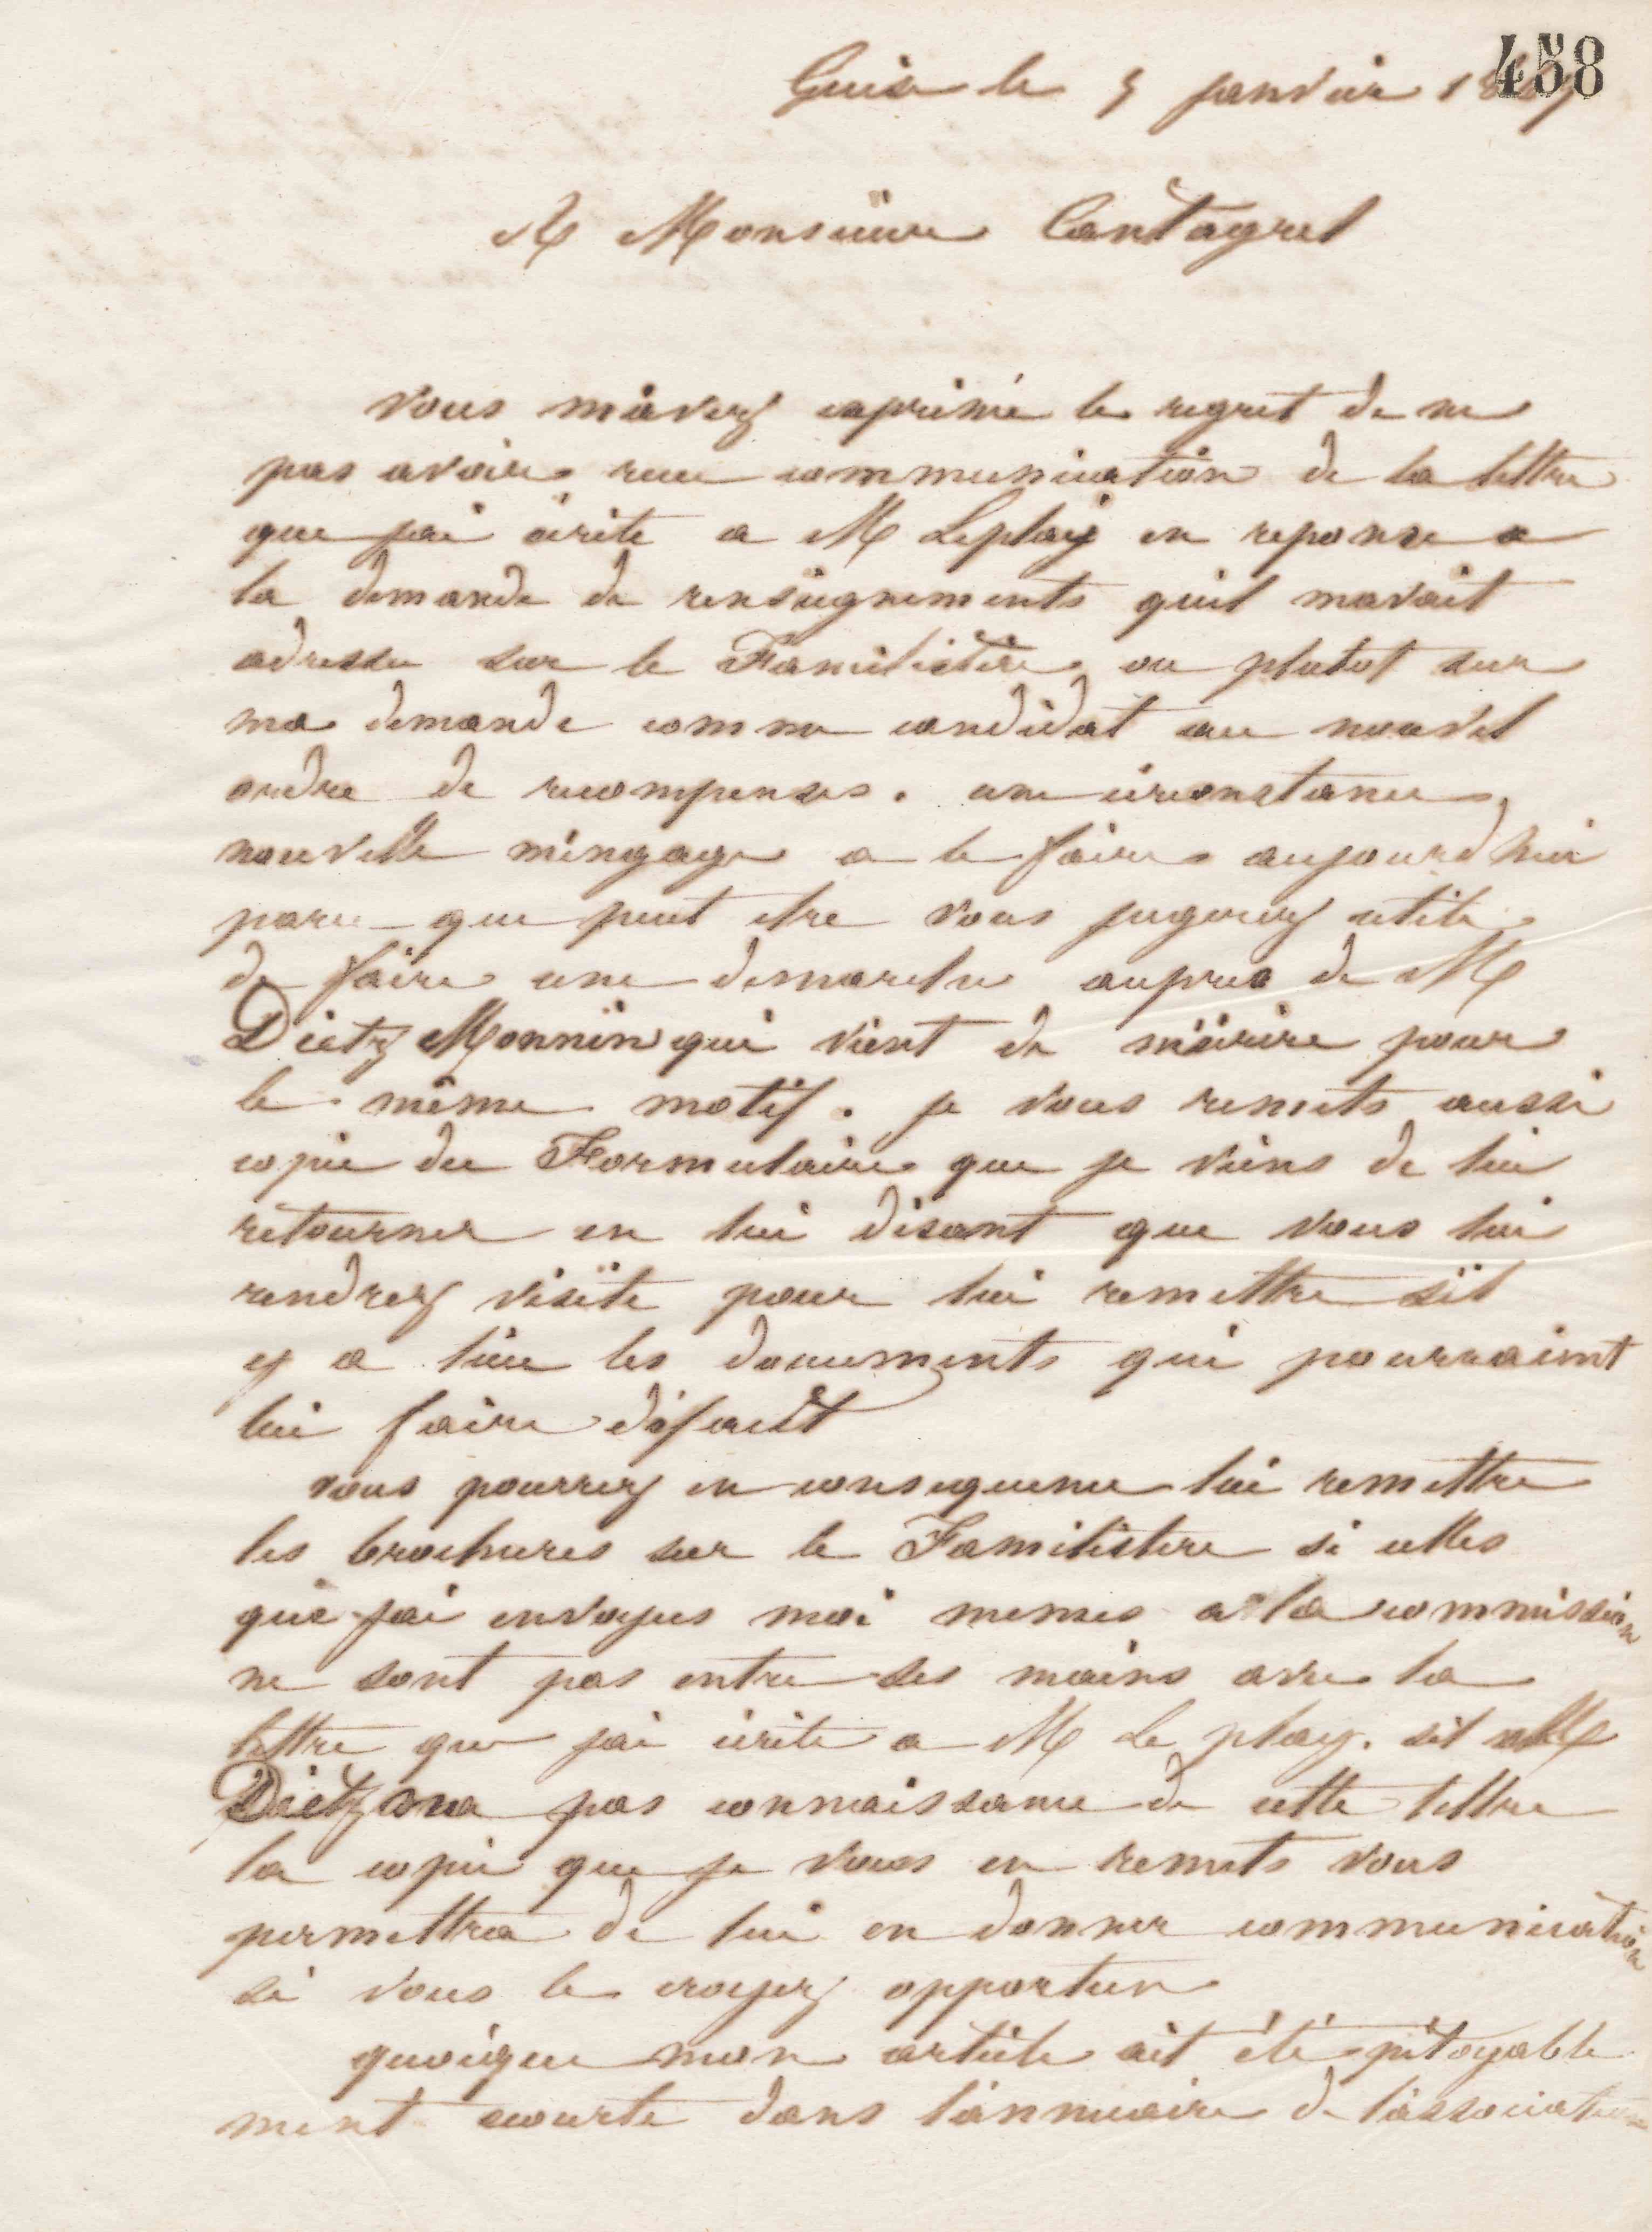 458
Guise le 5 janvier 18
A Monsieur Cantagrel
vous m'avez exprimé le regret de ne
pas avoir recu communication de la lettre
que jai écrite a M Leplay en reponse a
la demande de renseignements quil mavait
adressée sur le Familistère ou plutot sur
ma demande comme candidat au nouvel
ordre de recompenses. une circonstance
nouvelle m'engage a le faire aujourdhui
parce que peut etre vous jugerez utile
de faire une demarche aupres de M
Dietz Monnin qui vient de m'écrire pour
le même motif. je vous remets aussi
copie du Formulaire que je viens de lui
retourner en lui disant que vous lui
rendrez visite pour lui remettre sil
y a lieu les documents qui pourraient
lui faire défaut
vous pourrez en consequence lui remettre
les brochures sur le Familistere si celles
que jai envoyees moi memes a la commission
ne sont pas entre ses mains avec la
lettre que jai écrite a M Le play. sil M
Dietz na pas connaissance de cette lettre
la copie que je vous en remets vous
permettra de lui en donner communication
si vous le croyez opportun
quoique mon article ait été pitoyable
ment ecourté dans l'annuaire de l'association